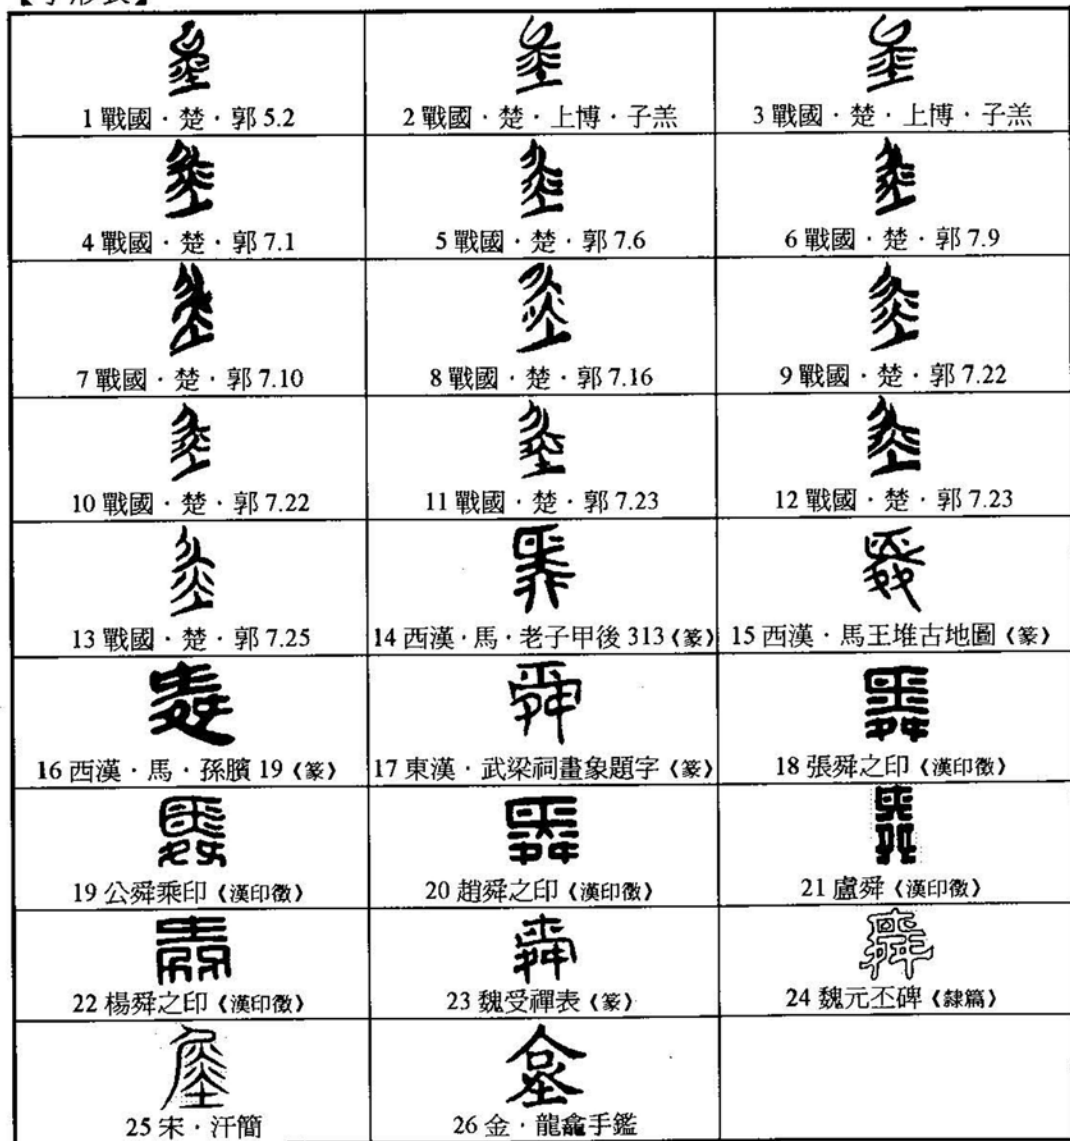 【字形表】
1 戰國·楚·郭 5.2
2 戰國·楚·上博·子羔
3 戰國·楚·上博·子羔
4 戰國·楚·郭 7.1
5 戰國·楚·郭 7.6
6 戰國·楚·郭 7.9
7 戰國·楚·郭 7.10
8 戰國·楚·郭 7.16
9 戰國·楚·郭 7.22
10 戰國·楚·郭 7.22
11 戰國·楚·郭 7.23
12 戰國·楚·郭 7.23
13 戰國·楚·郭 7.25
14 西漢·馬·老子甲後 313《篆》
15 西漢·馬王堆古地圖《篆》
16 西漢·馬·孫臏 19《篆》
17 東漢·武梁祠畫象題字《篆》
18 張舜之印《漢印徵》
19 公舜乘印《漢印徵》
20 趙舜之印《漢印徵》
21 盧舜《漢印徵》
22 楊舜之印《漢印徵》
23 魏受禪表《篆》
24 魏元丕碑《隸篇》
25 宋·汗簡
26 金·龍龕手鑑